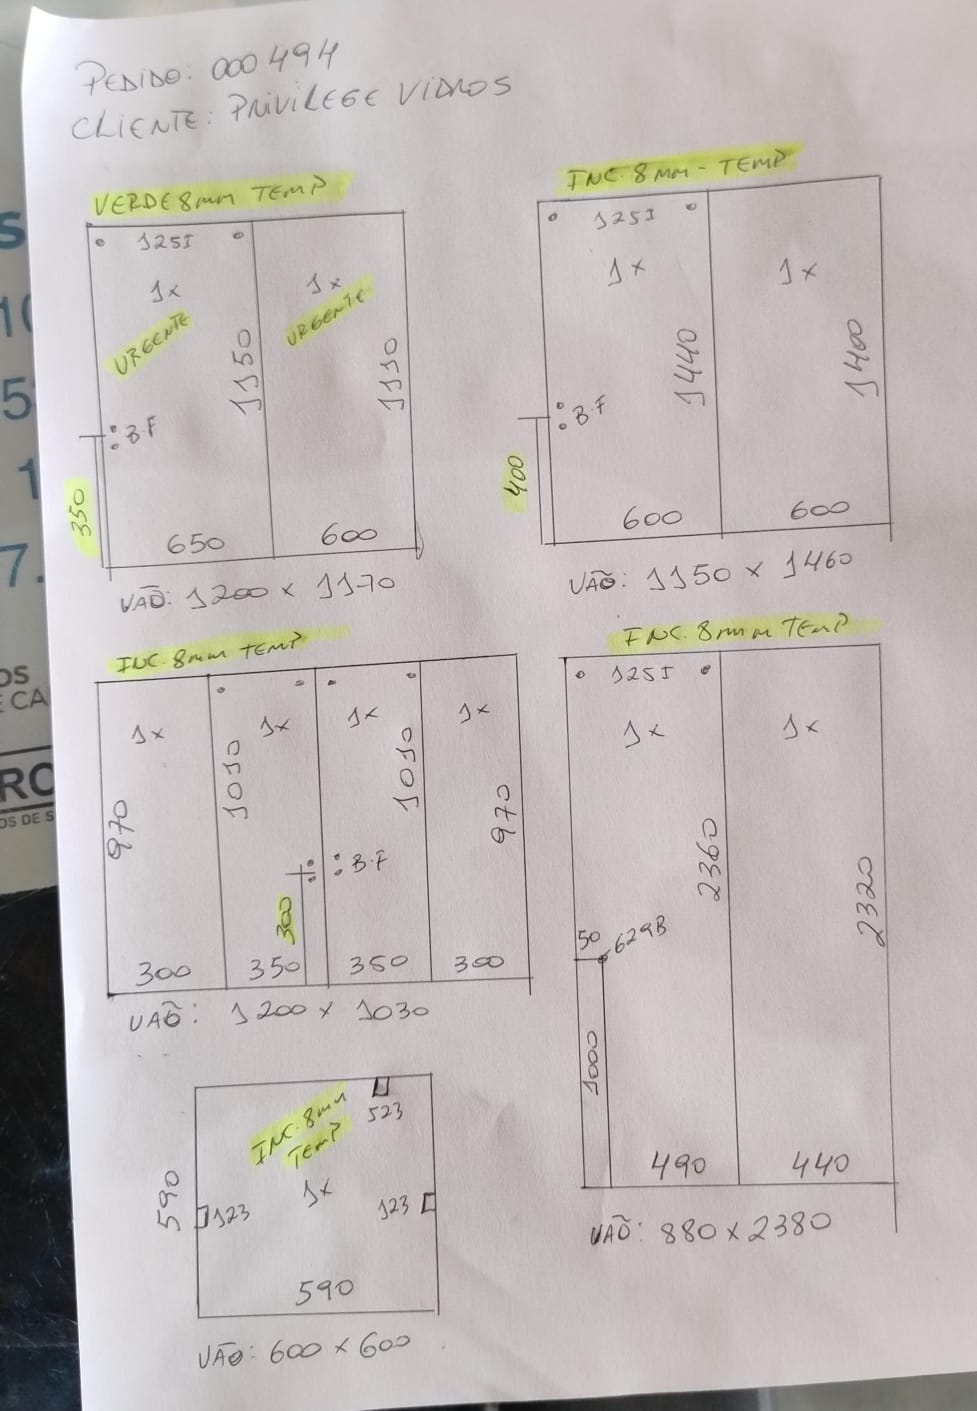 PEDIDO: 000494
CLIENTE: PRIVILEGE VIDROS
VERDE 8mm TEMP
125I
1x
1x
URGENTE
URGENTE
1150
1110
B.F
350
650
600
VÃO: 1200 x 1170
INC. 8MM - TEMP
125I
1x
1x
1440
1400
B.F
400
600
600
VÃO: 1150 x 1460
INC. 8mm TEMP
1x
1x
1x
1x
970
1010
1010
970
B.F
300
300
350
350
300
VÃO: 1200 x 1030
INC. 8mm TEMP
125I
1x
1x
2360
2320
50
629B
1000
490
440
VÃO: 880 x 2380
INC. 8mm
TEMP
523
1x
590
123
123
590
VÃO: 600 x 600
S
10
5
1
7.
OS
E CA
RO
OS DE S